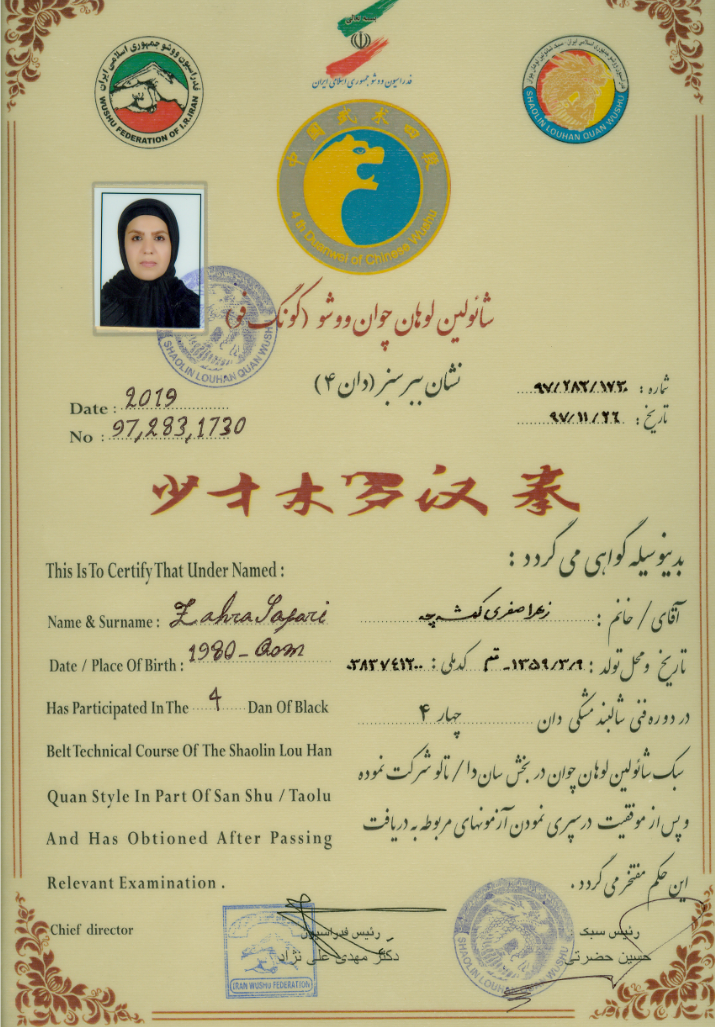 بسمه تعالی
فدراسیون ووشو جمهوری اسلامی ایران
فدراسیون ووشو جمهوری اسلامی ایران
WUSHU FEDERATION OF I.R.IRAN
SHAOLIN LOUHAN QUAN WUSHU
中國武术四段
4 th Duanwei of Chinese Wushu
SHAOLIN LOUHAN QUAN WUSHU
شائولین لوهان چوان ووشو (گونگ فو)
نشان ببر سبز (دان ۴)
شماره : ۹۷/۲۸۳/۱۷۳۰
تاریخ : ۹۷/۱۱/۲۶
Date : 2019
No : 97,283,1730
少林罗汉拳
بدینوسیله گواهی می گردد :
This Is To Certify That Under Named :
آقای / خانم : زهرا صفری
Name & Surname : Zahra Safari
تاریخ و محل تولد : ۱۳۵۹/۳/۹ - قم کدملی : ۰۳۸۳۷۴۱۲۰۰
Date / Place Of Birth : 1980 - Qom
در دوره فنی شالبند مشکی دان چهار ۴
Has Participated In The 4 Dan Of Black
سبک شائولین لوهان چوان در بخش سان دا / تالو شرکت نموده
Belt Technical Course Of The Shaolin Lou Han
Quan Style In Part Of San Shu / Taolu
و پس از موفقیت درسپری نمودن آزمونهای مربوطه به دریافت
And Has Obtioned After Passing
این حکم مفتخر می گردد .
Relevant Examination .
Chief director
رئیس فدراسیون
دکتر مهدی علی نژاد
رئیس سبک
حسین حضرتی
IRAN WUSHU FEDERATION
SHAOLIN LOUHAN QUAN WUSHU